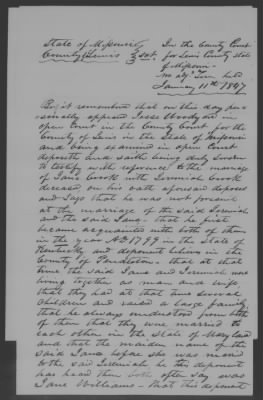 State of Missouri
County of Lewis } Sct.
In the County Court
for Lewis County State
of Missouri
An adj. Term held
January 11th 1847
Be it remembered that on this day per-
sonally appeared Jesse Woodyard in
open Court in the County Court for the
County of Lewis in the State of Missouri
and being examined in open Court
deposeth and saith being duly sworn
to testify with reference to the marriage
of Jane Cook with Jeremiah Cook
deceased on his oath aforesaid deposes
and says that he was not present
at the marriage of the said Jeremiah
and the said Jane that he first
became acquainted with both of them
in the year AD 1799 in the State of
Kentucky and deponent believes in the
County of Pendleton that at that
time the said Jane and Jeremiah were
living together as man and wife
that they had at that time several
children and raised a large family
that he always understood from both
of them that they were married to
each other in the State of Maryland
and that the maiden name of the
said Jane before she was married
to the said Jeremiah he this deponent
has heard them both often say was
Jane Williams - that this deponent